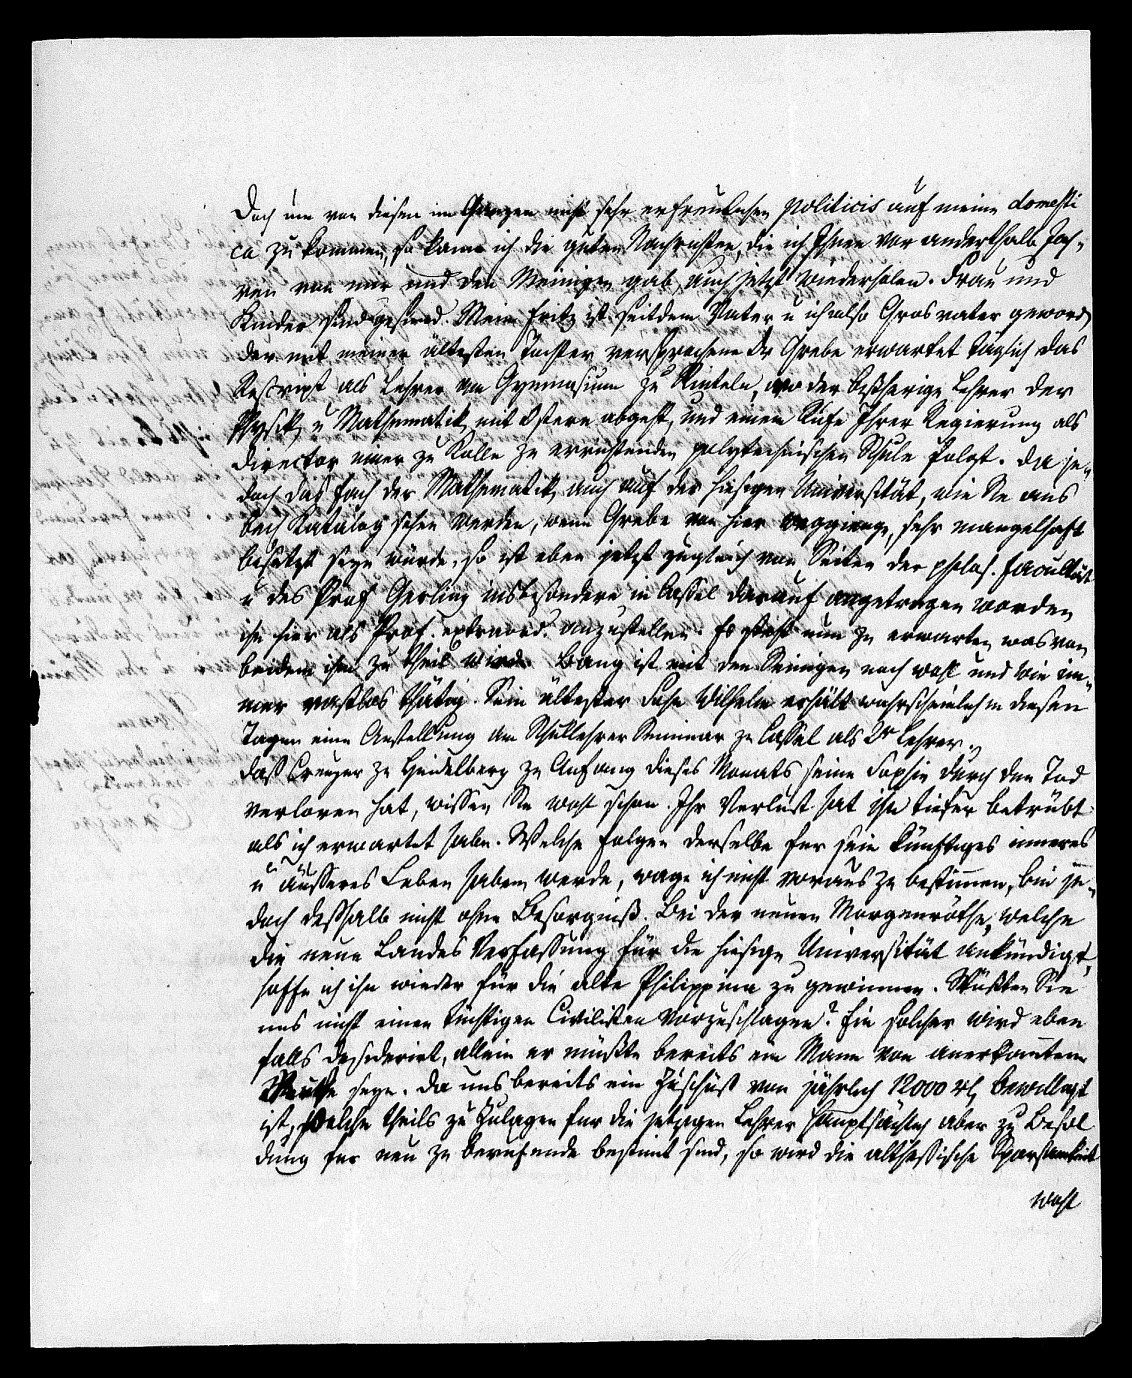 Doch um von diesen im Ganzen nicht sehr erfreulichen politicis auf meine domesti
ca zu kommen, so kann ich die guten Nachrichten, die ich Ihnen vor anderthalb Jah-
ren von mir und den Meinigen gab, auch jetzt wiederholen. Frau und
Kinder sind gesund. Mein Fritz ist seitdem Vater u ich also Grosvater geword
der mit meiner ältesten Tochter versprochene Dr Grebe erwartet täglich das
Rescript als Lehrer am Gymnasium zu Rinteln, wo der bisherige Lehrer der
Physik u Mathematik mit Ostern abgeht, und einem Rufe Ihrer Regierung als
Director einer zu Kölln zu errichtenden polytechnischen Schule folgt. Da je-
doch das Fach der Mathematik auch auf der hiesigen Universität, wie Sie aus
dem Katalog sehen werden, wenn Grebe von hier weggienge, sehr mangelhaft
besetzt seyn würde, so ist eben jetzt zugleich von Seiten der philos. Facultät
u des Prof Gerling insbesondere in Cassel darauf angetragen worden
ihn hier als Prof. extraord. anzustellen. Es steht nun zu erwarten was von
beiden ihm zu Theil wird. Bang ist mit den Seinigen noch wohl und wie im-
mer rastlos thätig. Sein ältester Sohn Wilhelm erhält wahrscheinlich in diesen
Tagen eine Anstellung am Schullehrer Seminar zu Cassel als 2r Lehrer.
Daß Creuzer zu Heidelberg zu Anfang dieses Monats seine Sophie durch den Tod
verloren hat, wissen Sie wohl schon. Ihr Verlust hat ihn tiefer betrübt
als ich erwartet habe. Welche Folgen derselbe für sein künftiges inneres
u äusseres Leben haben werde, wage ich nicht voraus zu bestimmen, bin je-
doch deßhalb nicht ohne Besorgniß. Bei der neuen Morgenröthe, welche
die neue Landes Verfassung für die hiesige Universität ankündigt,
hoffe ich ihn wieder für die alte Philippina zu gewinnen. Wüßten Sie
uns nicht einen tüchtigen Civilisten vorzuschlagen? Ein solcher wird eben
falls desiderirt, allein er müßte bereits ein Mann von anerkanntem
seyn. Da uns bereits ein Zuschuß von jährlich 12000 rh bewilligt
ist, welche theils zu Zulagen für die jetzigen Lehrer hauptsächlich aber zu Besol
dung für neu zu berufende bestimmt sind, so wird die althessische Sparsamkeit
wohl